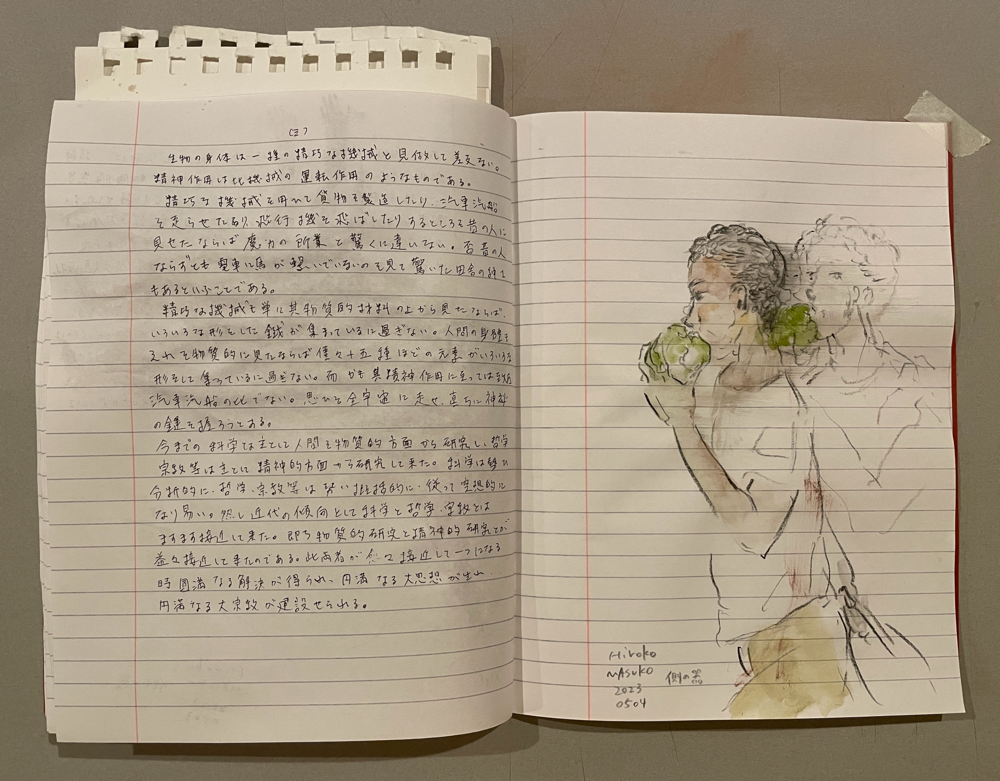 (ヨ)
生物の身体は一種の精巧な機械と見做して差支ない。
精神作用は此機械の運転作用のようなものである。
精巧な機械を用いて貨物を製造したり、汽車汽船
を走らせたり、飛行機を飛ばしたりするところを昔の人に
見せたならば魔力の所業と驚くに違いない。否昔の人
ならずとも電車に馬が繋いでいないのを見て驚いた田舎の
もあるということである。
精巧な機械も単に其物質的材料の上から見たならば、
いろいろな形をした鉄が集まっているに過ぎない。人間の身体も
之れを物質的に見たならば僅々十五種ほどの元素がいろいろな
形をして集っているに過ぎない。而かも其精神作用に至っては
汽車汽船の比でない。思ひを全宇宙に走せ、直ちに神秘
の鍵を握ろうとする。
今までの科学は主として人間を物質的方面から研究し、哲学
宗教等は主として精神的方面から研究して来た。科学は勢ひ
分析的に、哲学、宗教等は勢い抱括的に、従って空想的に
なり易い。然し近代の傾向として科学と哲学、宗教とは
ますます接近して来た。即ち物質的研究と精神的研究とが
益々接近して来たのである。此両者が愈々接近して一つになる
時円満なる解決が得られ、円満なる大思想が生れ
円満なる大宗教が建設せられる。
Hiroko
MAsuko
2023
0504
側の器